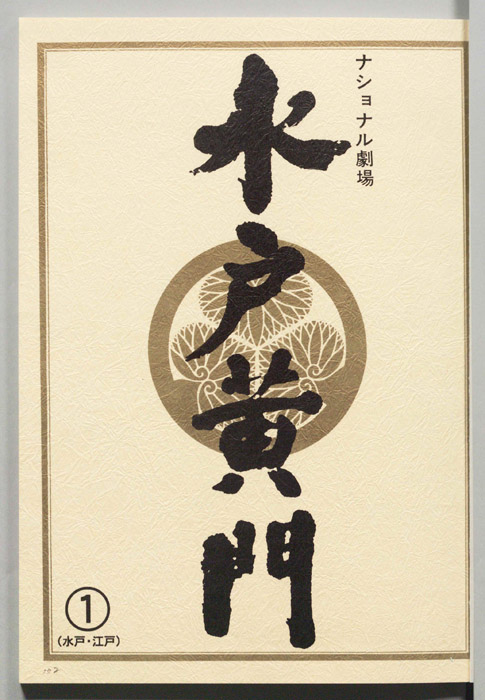 ナショナル劇場
水戸黄門
①
(水戸・江戸)